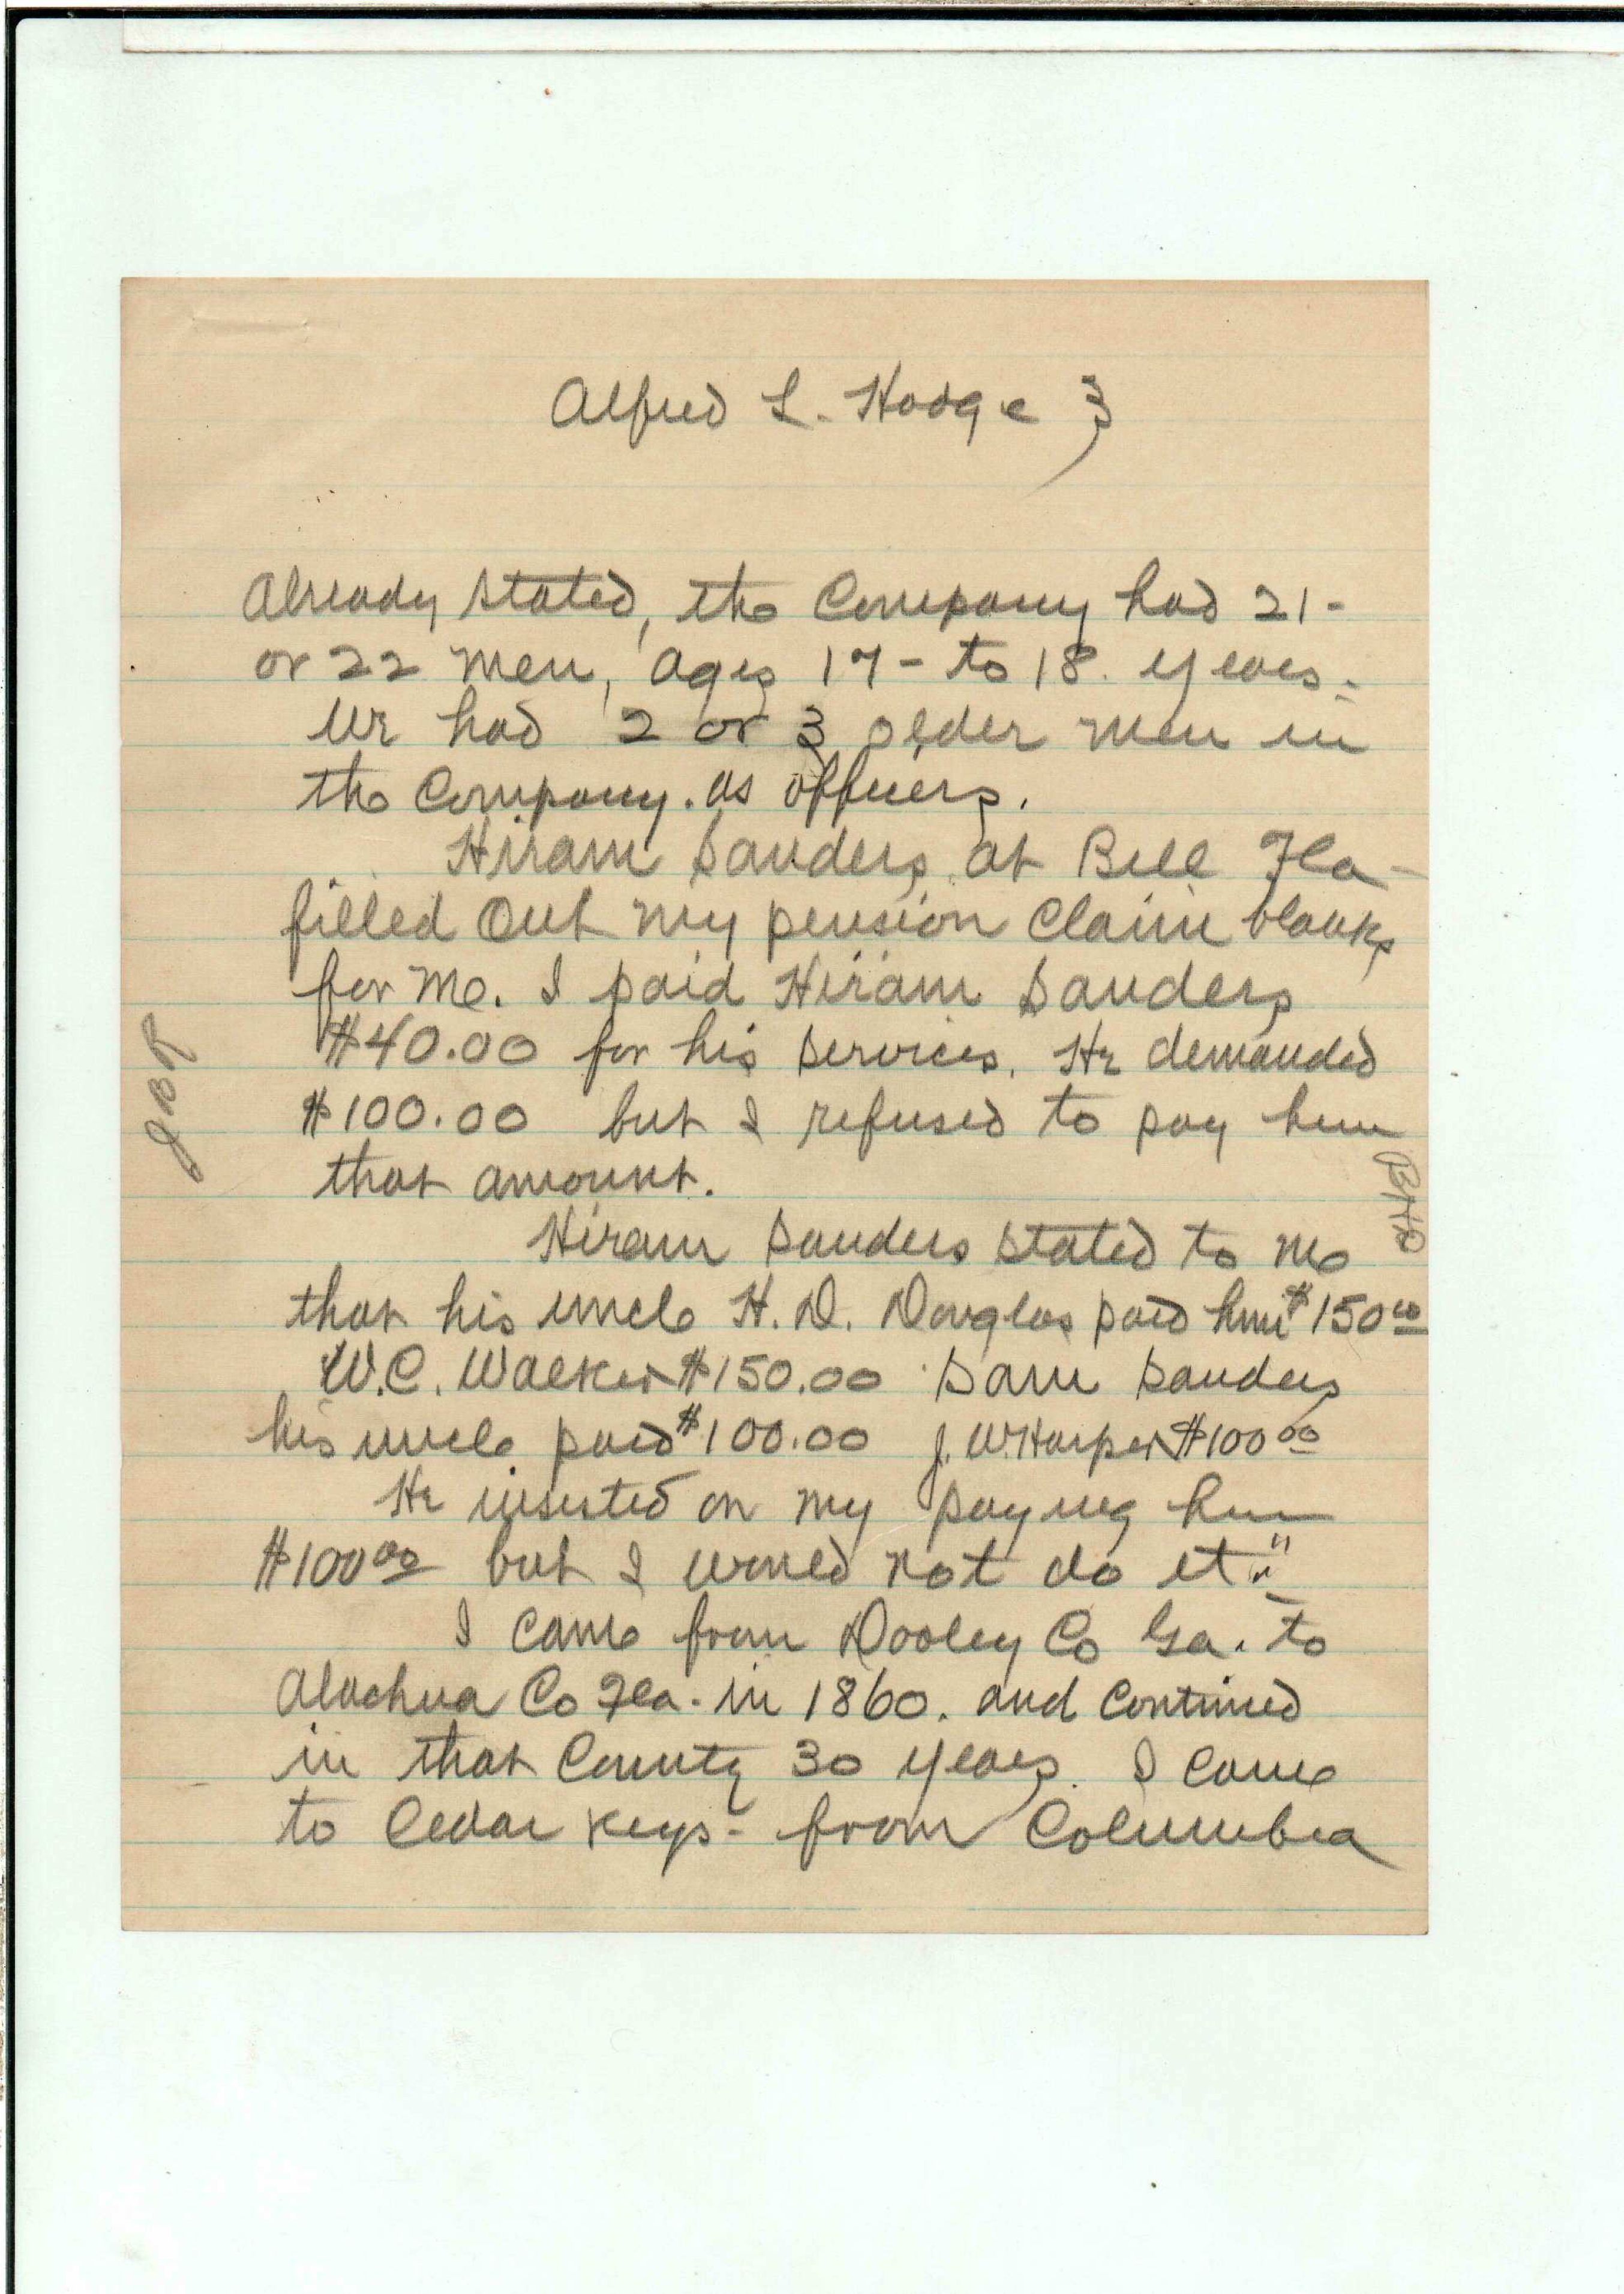 Alfred L. Hodge 3
Already stated, the Company had 21-
or 22 men, ages 17- to 18. years-
We had 2 or 3 older men in
the Company. as officers.
Hiram Sanders, at Bell Fla-
filled out my pension claim blanks
for me. I paid Hiram Sanders
$40.00 for his services. He demanded
$100.00 but I refused to pay him
that amount.
Hiram Sanders stated to me
that his uncle H. D. Douglas paid him $150.00
W.C. Walker $150.00 Sam Sanders
his uncle paid $100.00 J. W Harper $100.00
He insisted on my paying him
$100.00 but I would not do it."
I came from Dooley Co Ga. to
Alachua Co Fla. in 1860. and continued
in that County 30 years. I came
to Cedar Keys- from Columbia
JBR